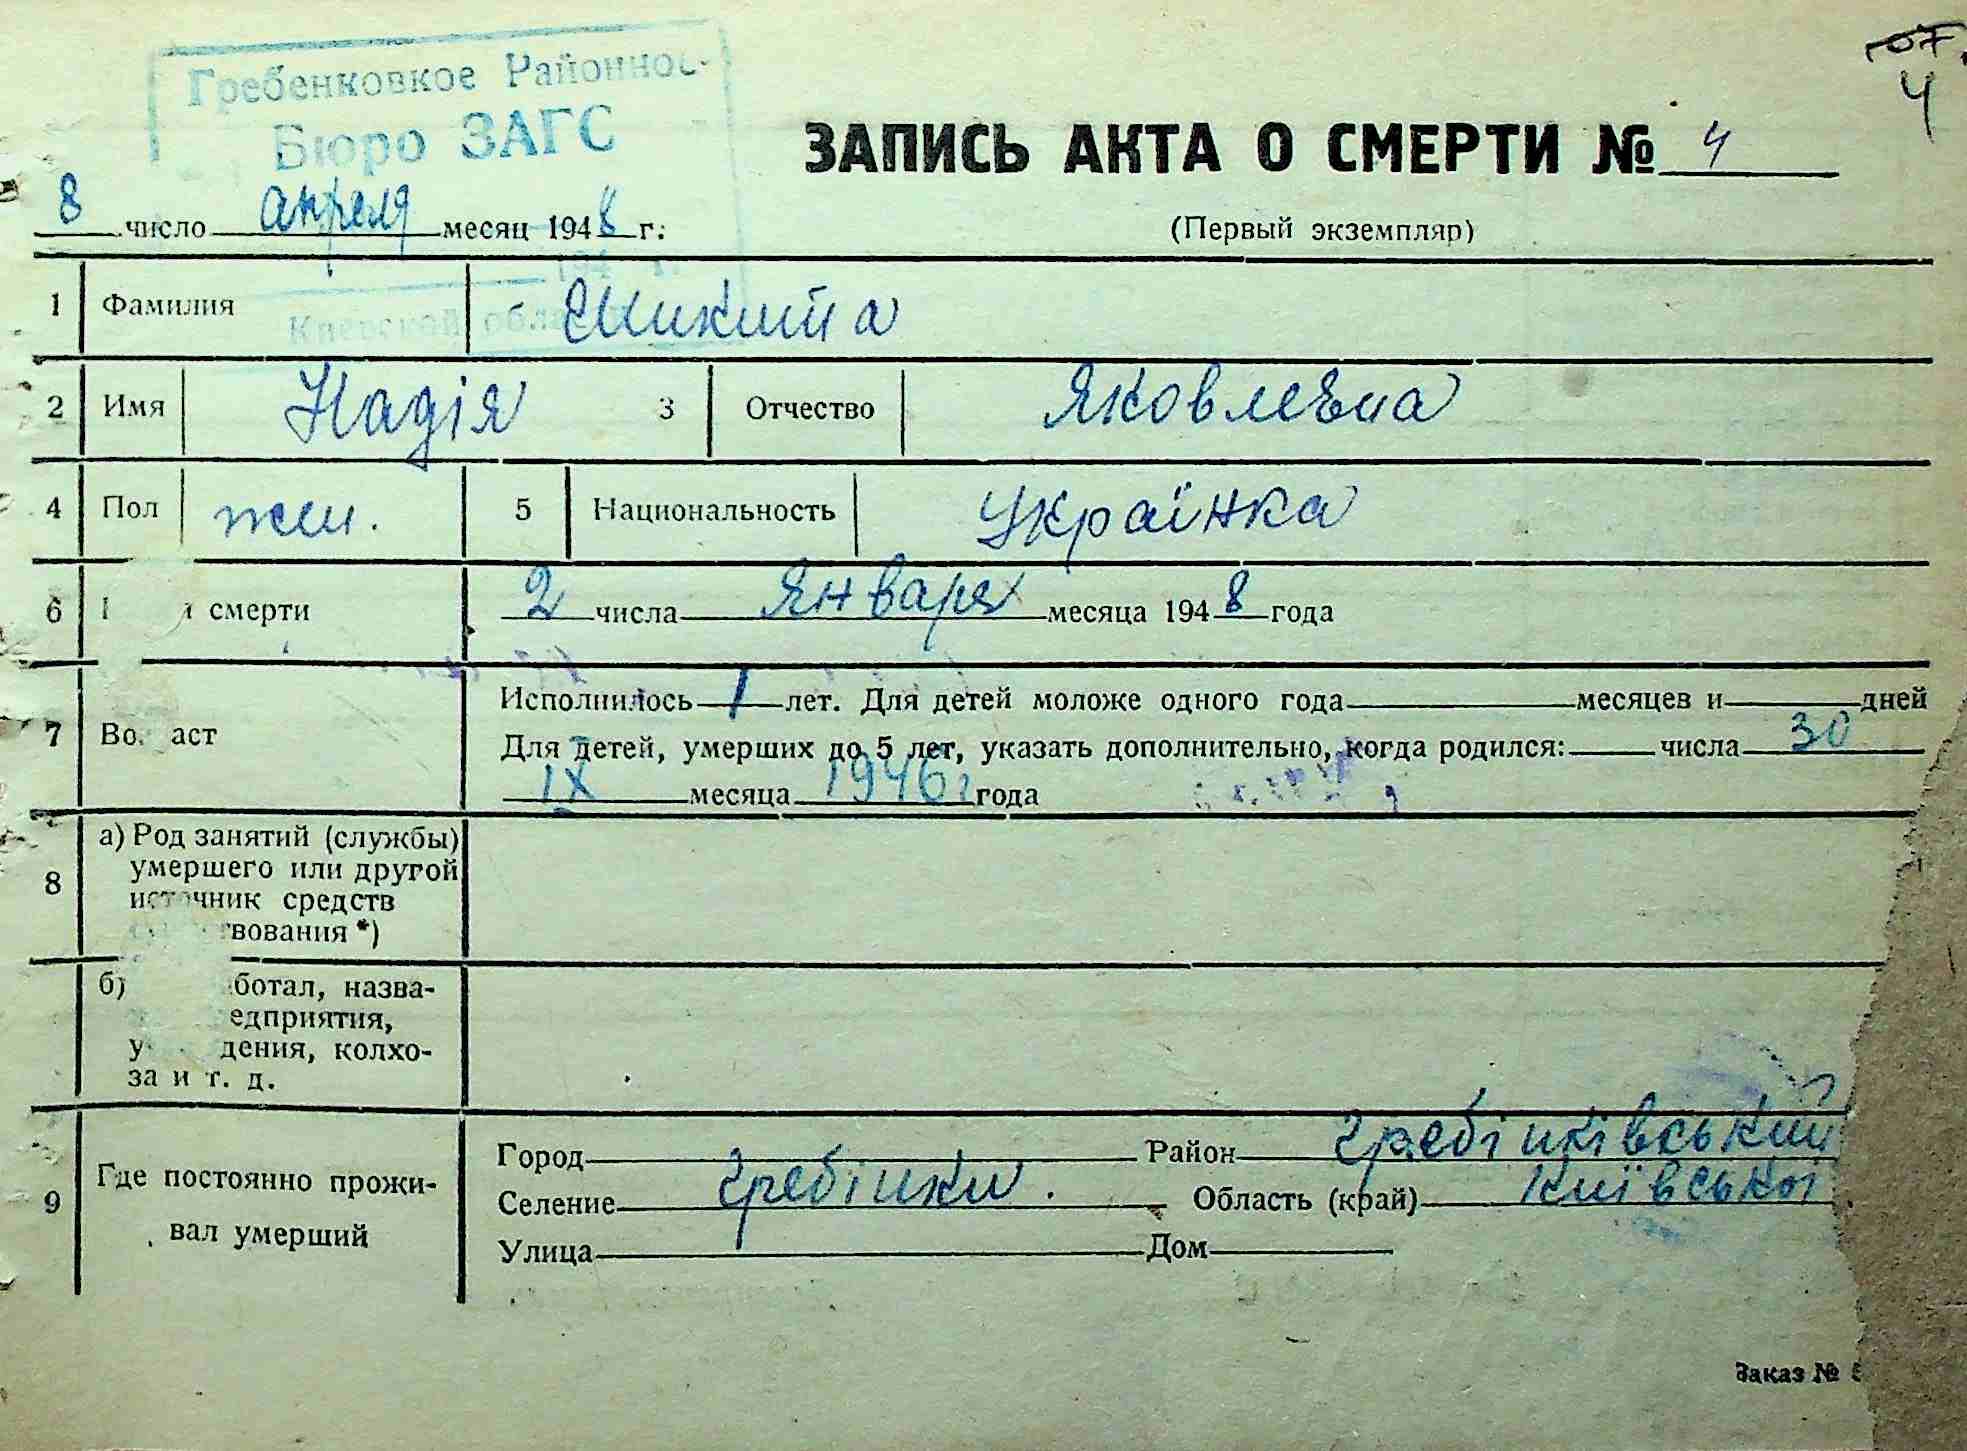 Гребенковкое Районное
Бюро ЗАГС
4
ЗАПИСЬ АКТА О СМЕРТИ № 4
8 число апреля месяц 1948 г.
(Первый экземпляр)
194 г.
Киевской области
1 Фамилия Микита
2 Имя Надія 3 Отчество Яковлевна
4 Пол жен. 5 Национальность Українка
6 смерти 2 числа Января месяца 1948 года
7 Возраст Исполнилось 1 лет. Для детей моложе одного года месяцев и дней
Для детей, умерших до 5 лет, указать дополнительно, когда родился: числа 30
IX месяца 1946 г года
8 а) Род занятий (службы)
умершего или другой
источник средств
ствования *)
б) ботал, назва-
едприятия,
дения, колхо-
за и т. д.
9 Где постоянно прожи-
вал умерший
Город Район Гребінківський
Селение Гребінки. Область (край) Київської
Улица Дом
Заказ №